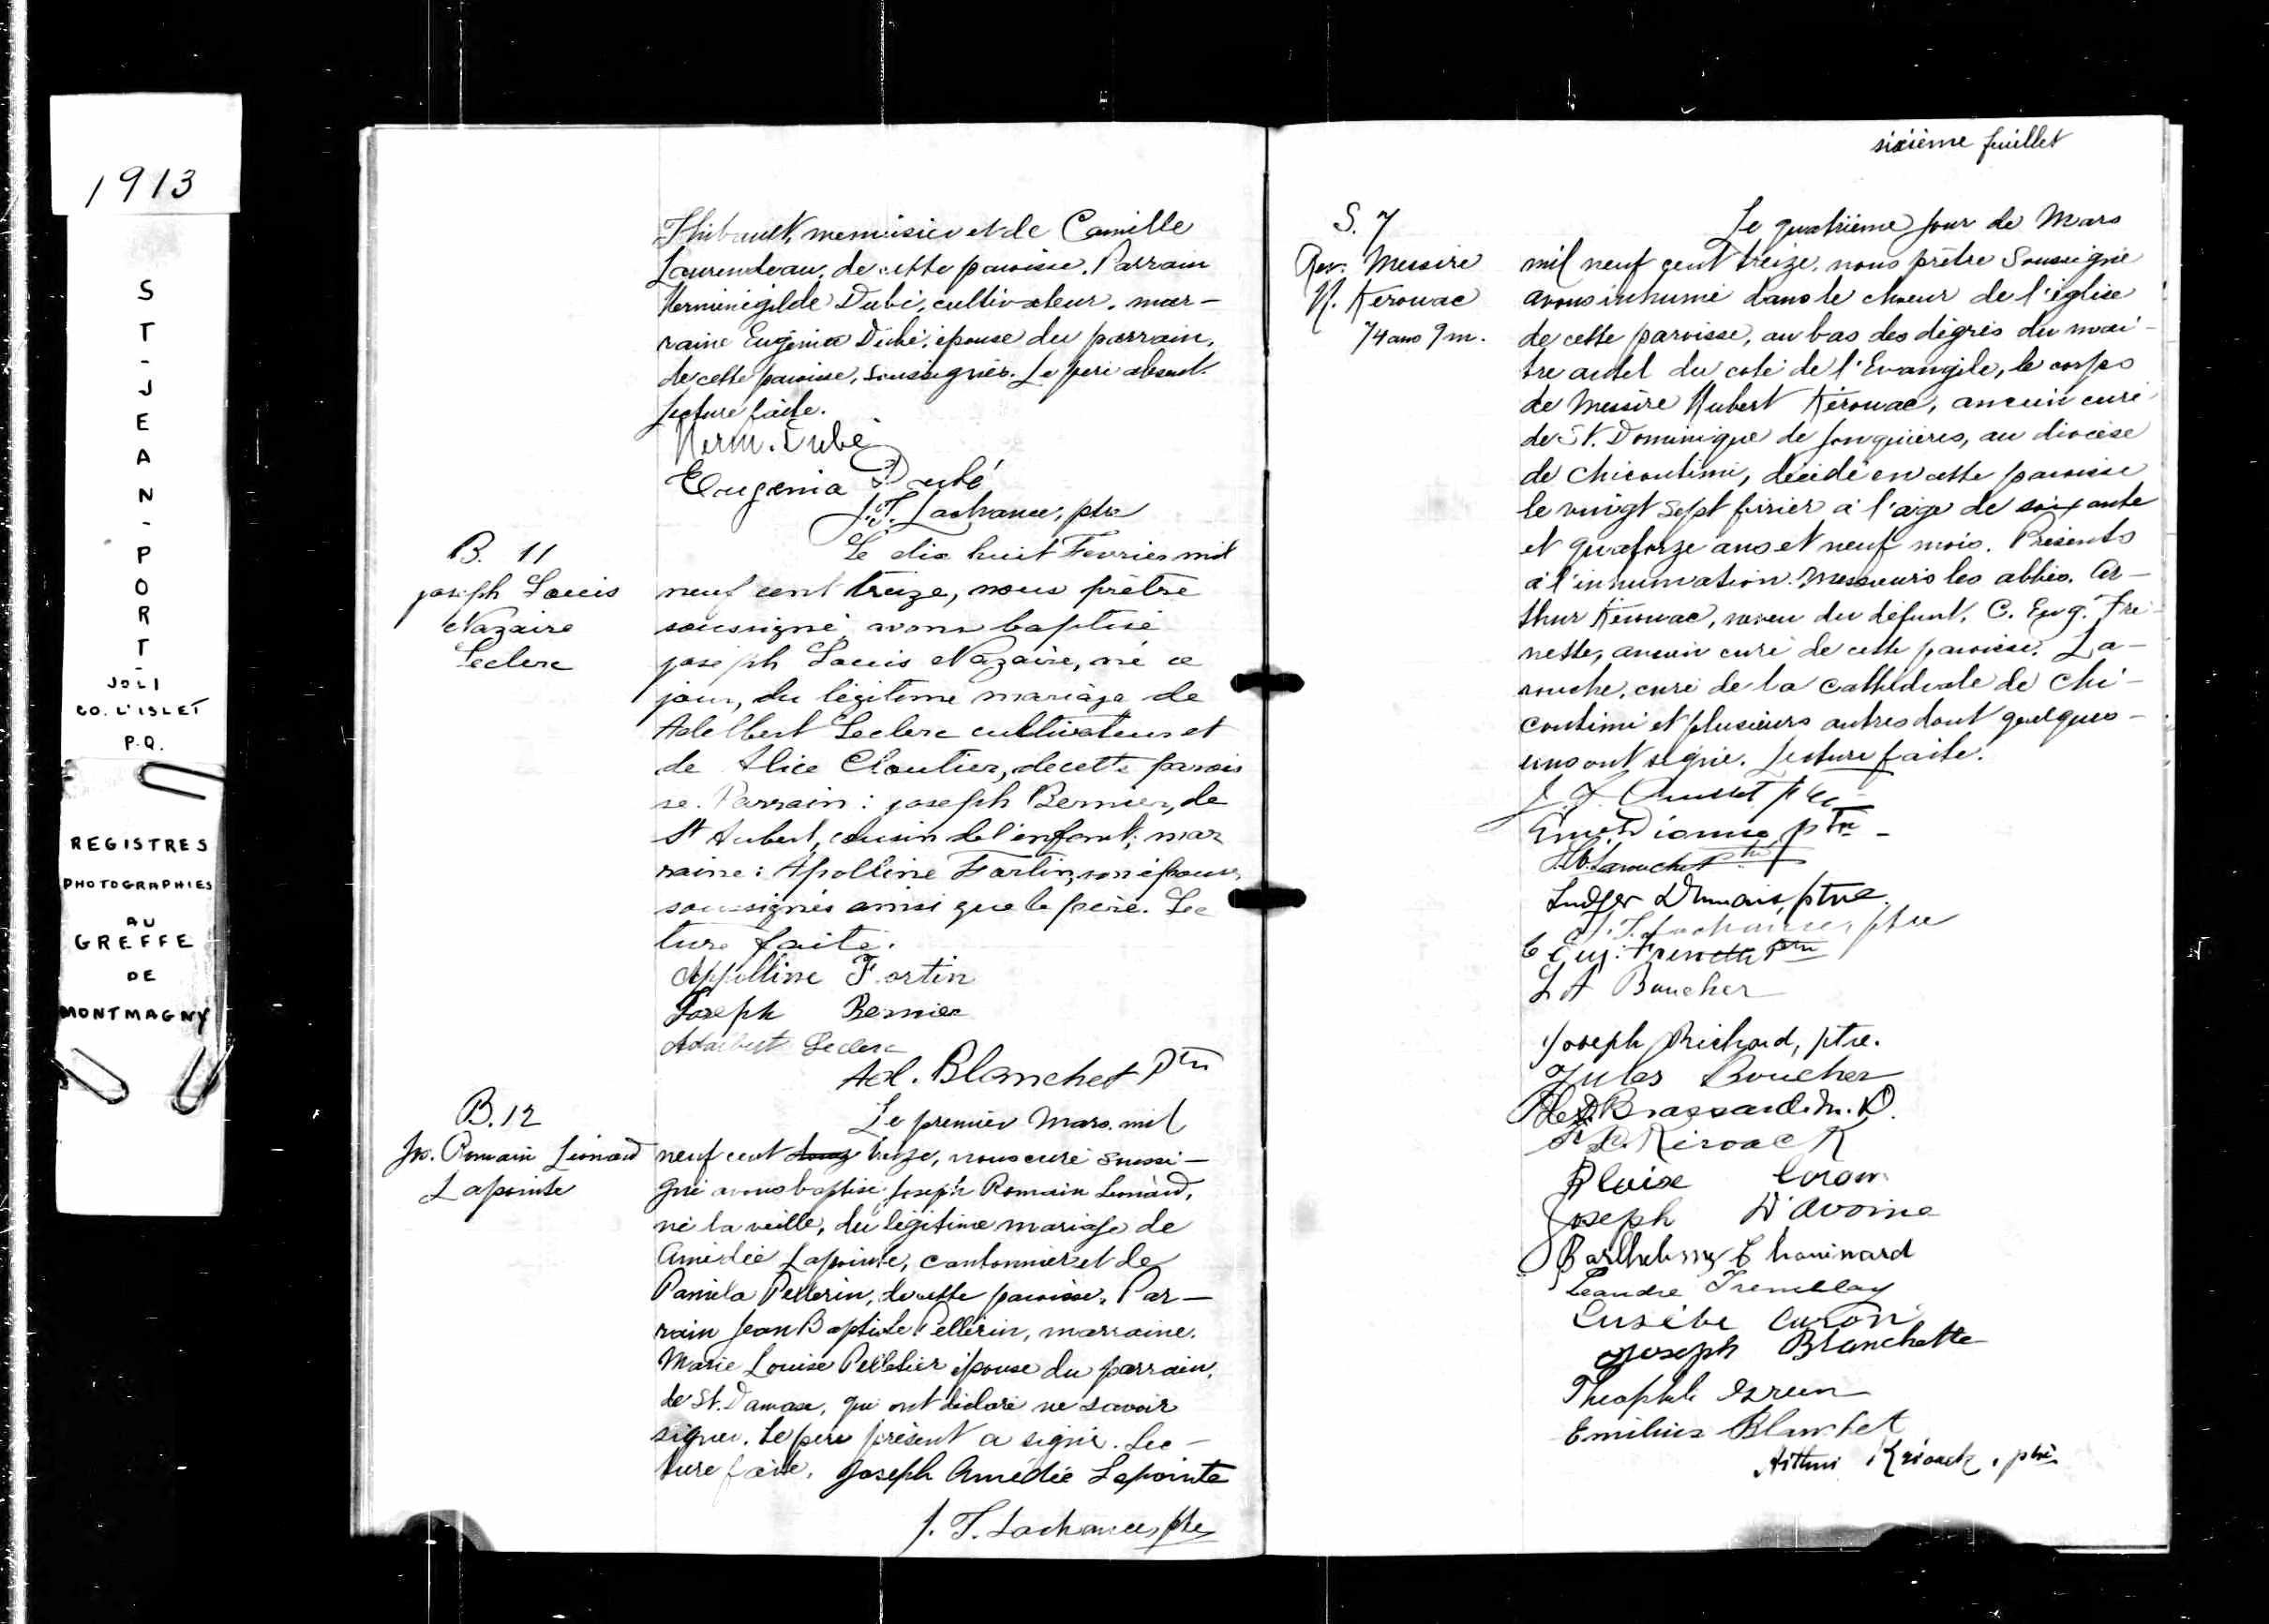 1913
S
T
-
J
E
A
N
-
P
O
R
T
-
JOLI
CO. L'ISLET
P.Q.
REGISTRES
PHOTOGRAPHIES
AU
GREFFE
DE
MONTMAGNY
Thibault, menuisier et de Camille
Laurendeau, de cette paroisse. Parrain
Herménégilde Dubé, cultivateur, mar-
raine Eugénia Dubé, épouse du parrain,
de cette paroisse, soussignés. Le père absent.
Lecture faite.
Herm. Dubé
Eugenia Dubé
J. T. Lachance, ptre
B. 11
joseph Louis
Nazaire
Leclerc
Le dix huit Fevrier mil
neuf cent treize, nous prêtre
soussigné avons baptisé
joseph Louis Nazaire, né ce
jour, du légitime mariage de
Adelbert Leclerc cultivateur et
de Alice Cloutier, de cette parois
se. Parrain : joseph Bernier, de
St Aubert, cousin de l'enfant; mar
raine : Apolline Fortin, son épouse
soussignés ainsi que le père. Lec
ture faite.
Appolline Fortin
Joseph Bernier
Adalbert Leclerc
Ad. Blanchet Ptre
B. 12
Jos. Romain Léonard
Lapointe
Le premier Mars mil
neuf cent treize, nous curé soussi-
gné avons baptisé Joseph Romain Léonard,
né la veille, du légitime mariage de
Amédée Lapointe, cantonnier et de
Paméla Pellerin, de cette paroisse. Par-
rain Jean Baptiste Pellerin, marraine
Marie Louise Pelletier épouse du parrain,
de St. Damase, qui ont déclaré ne savoir
signer. Le père présent a signé. Lec-
ture faite. Joseph Amédée Lapointe
J. T. Lachance, ptre
sixième feuillet
S. 7
Rev. Messire
H. Kérouac
74 ans 9 m.
Le quatrième jour de Mars
mil neuf cent treize, nous prêtre soussigné
avons inhumé dans le choeur de l'église
de cette paroisse, au bas des dégrés du maî-
tre autel du coté de l'Evangile, le corps
de Messire Hubert Kérouac, ancien curé
de St. Dominique de Jonquières, au diocèse
de Chicoutimi, décédé en cette paroisse
le vingt sept février à l'âge de soixante
et quatorze ans et neuf mois. Présents
à l'inhumation Messieurs les abbés. Ar-
thur Kérouac, neveu du défunt, C. Eug. Fre-
nette, ancien curé de cette paroisse, La-
rouche, curé de la Cathédrale de Chi-
coutimi et plusieurs autres dont quelques-
uns ont signé. Lecture faite.
Dionne ptre
Larouche ptre
Ludger Dumais, ptre
J. T. Lachance, ptre
C Eug. Frenette Ptre
L A Boucher
Joseph Richard, ptre.
Jules Boucher
Brassard M. D.
Kirouack
Blaise Caron
Joseph D'Avoine
Barthelemy Chouinard
Léandre Tremblay
Eusèbe Caron
Joseph Blanchette
Theophile
Emilius Blanchet
Arthur Kérouack, ptre